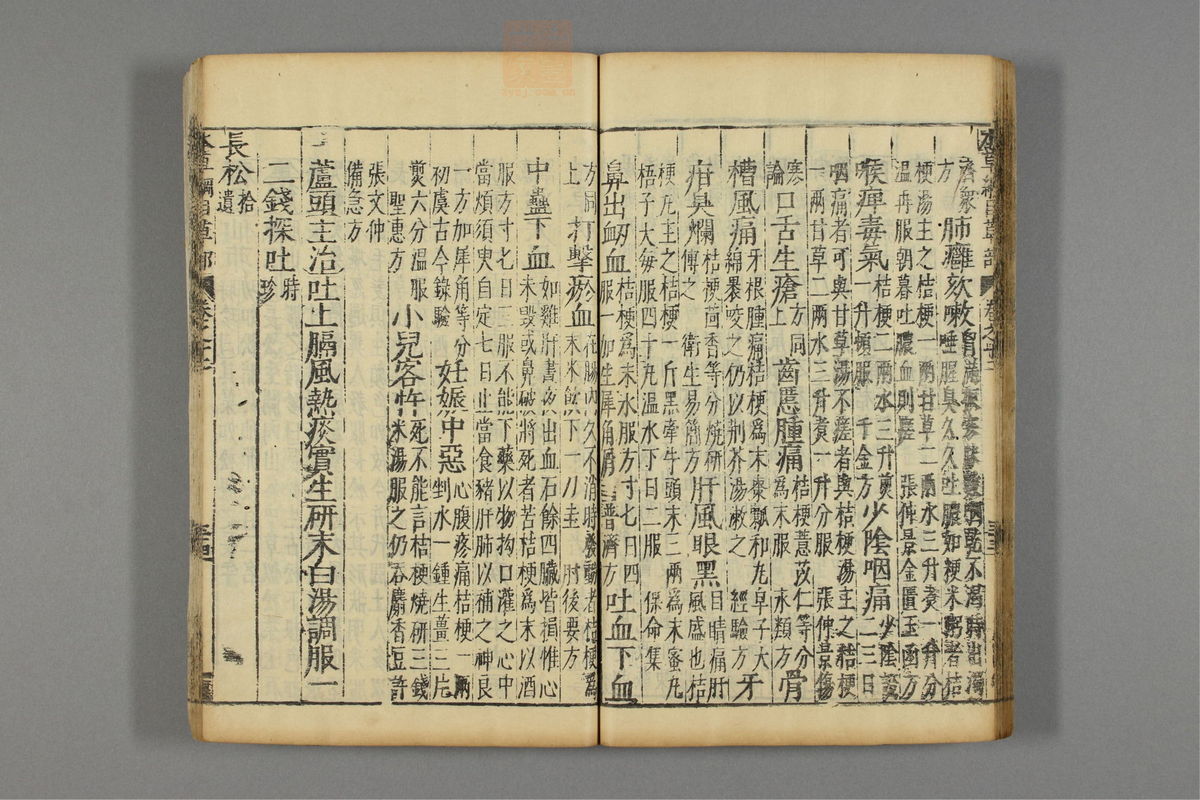 濟衆方 肺癰欬嗽 胸滿振寒脉數咽乾不渴時出濁
唾腥臭久久吐膿如粳米粥者桔
梗湯主之桔梗一兩甘草二兩水三升煮一升分
溫再服朝暮吐膿血則瘥 張仲景金匱玉函方
喉痺毒氣 桔梗二兩水三升煎一升頓服 千金方 少陰咽痛 少陰證二三日
咽痛者可與甘草湯不瘥者與桔梗湯主之桔梗
一兩甘草二兩水三升煮一升分服 張仲景傷
寒論 口舌生瘡 方同上 齒䘌腫痛 桔梗薏苡仁等分為末服 永類方 骨
槽風痛 牙根腫痛桔梗為末棗瓤和丸皂子大
綿裹咬之仍以荆芥湯漱之 經驗方 牙
疳臭爛 桔梗茴香等分燒研傅之 衛生易簡方 肝風眼黑 目睛痛肝風盛也桔
梗丸主之桔梗一斤黑牽牛頭末三兩為末蜜丸
梧子大每服四十丸温水下日二服 保命集
鼻出衄血 桔梗為末水服方寸匕日四服一加生犀角屑 普濟方 吐血下血
方同上 打擊瘀血 在腸内久不消時發動者桔梗為
末米飲下一刀圭 肘後要方
中蠱下血 如雞肝晝夜出血石餘四臟皆損惟心
未毀或鼻破將死者苦桔梗為末以酒
服方寸匕日三服不能下藥以物拗口灌之心中
當煩須臾自定七日止當食豬肝肺以補之神良
一方加犀角等分 初虞古今錄驗 妊娠中惡 心腹疼痛桔梗一兩
剉水一鍾生薑三片
煎六分溫服 聖惠方 小兒客忤 死不能言桔梗燒研三錢
米湯服之仍吞麝香豆許
張文仲備急方
蘆頭主治吐上膈風熱痰實生研末白湯調服一
二錢探吐 時珍
長松 拾遺
本草綱目草部